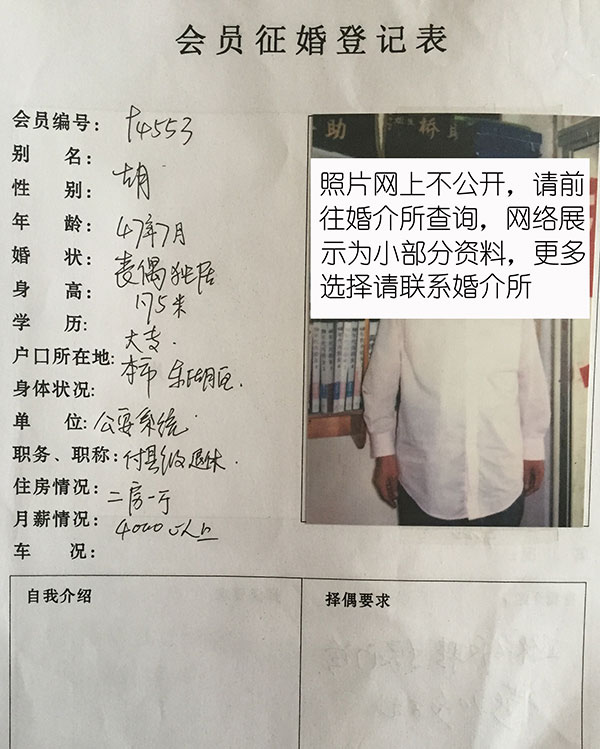 会员征婚登记表
会员编号: T4553
别 名: 胡
性 别:
年 龄: 47年7月
婚 状: 丧偶独居
身 高: 1.75米
学 历: 大专.
户口所在地: 本市 东湖区.
身体状况:
单 位: 公安系统
职务、职称: 付县级退休.
住房情况: 二房一厅
月薪情况: 4000以上
车 况:
助 桥
照片网上不公开，请前
往婚介所查询，网络展
示为小部分资料，更多
选择请联系婚介所
自我介绍
择偶要求